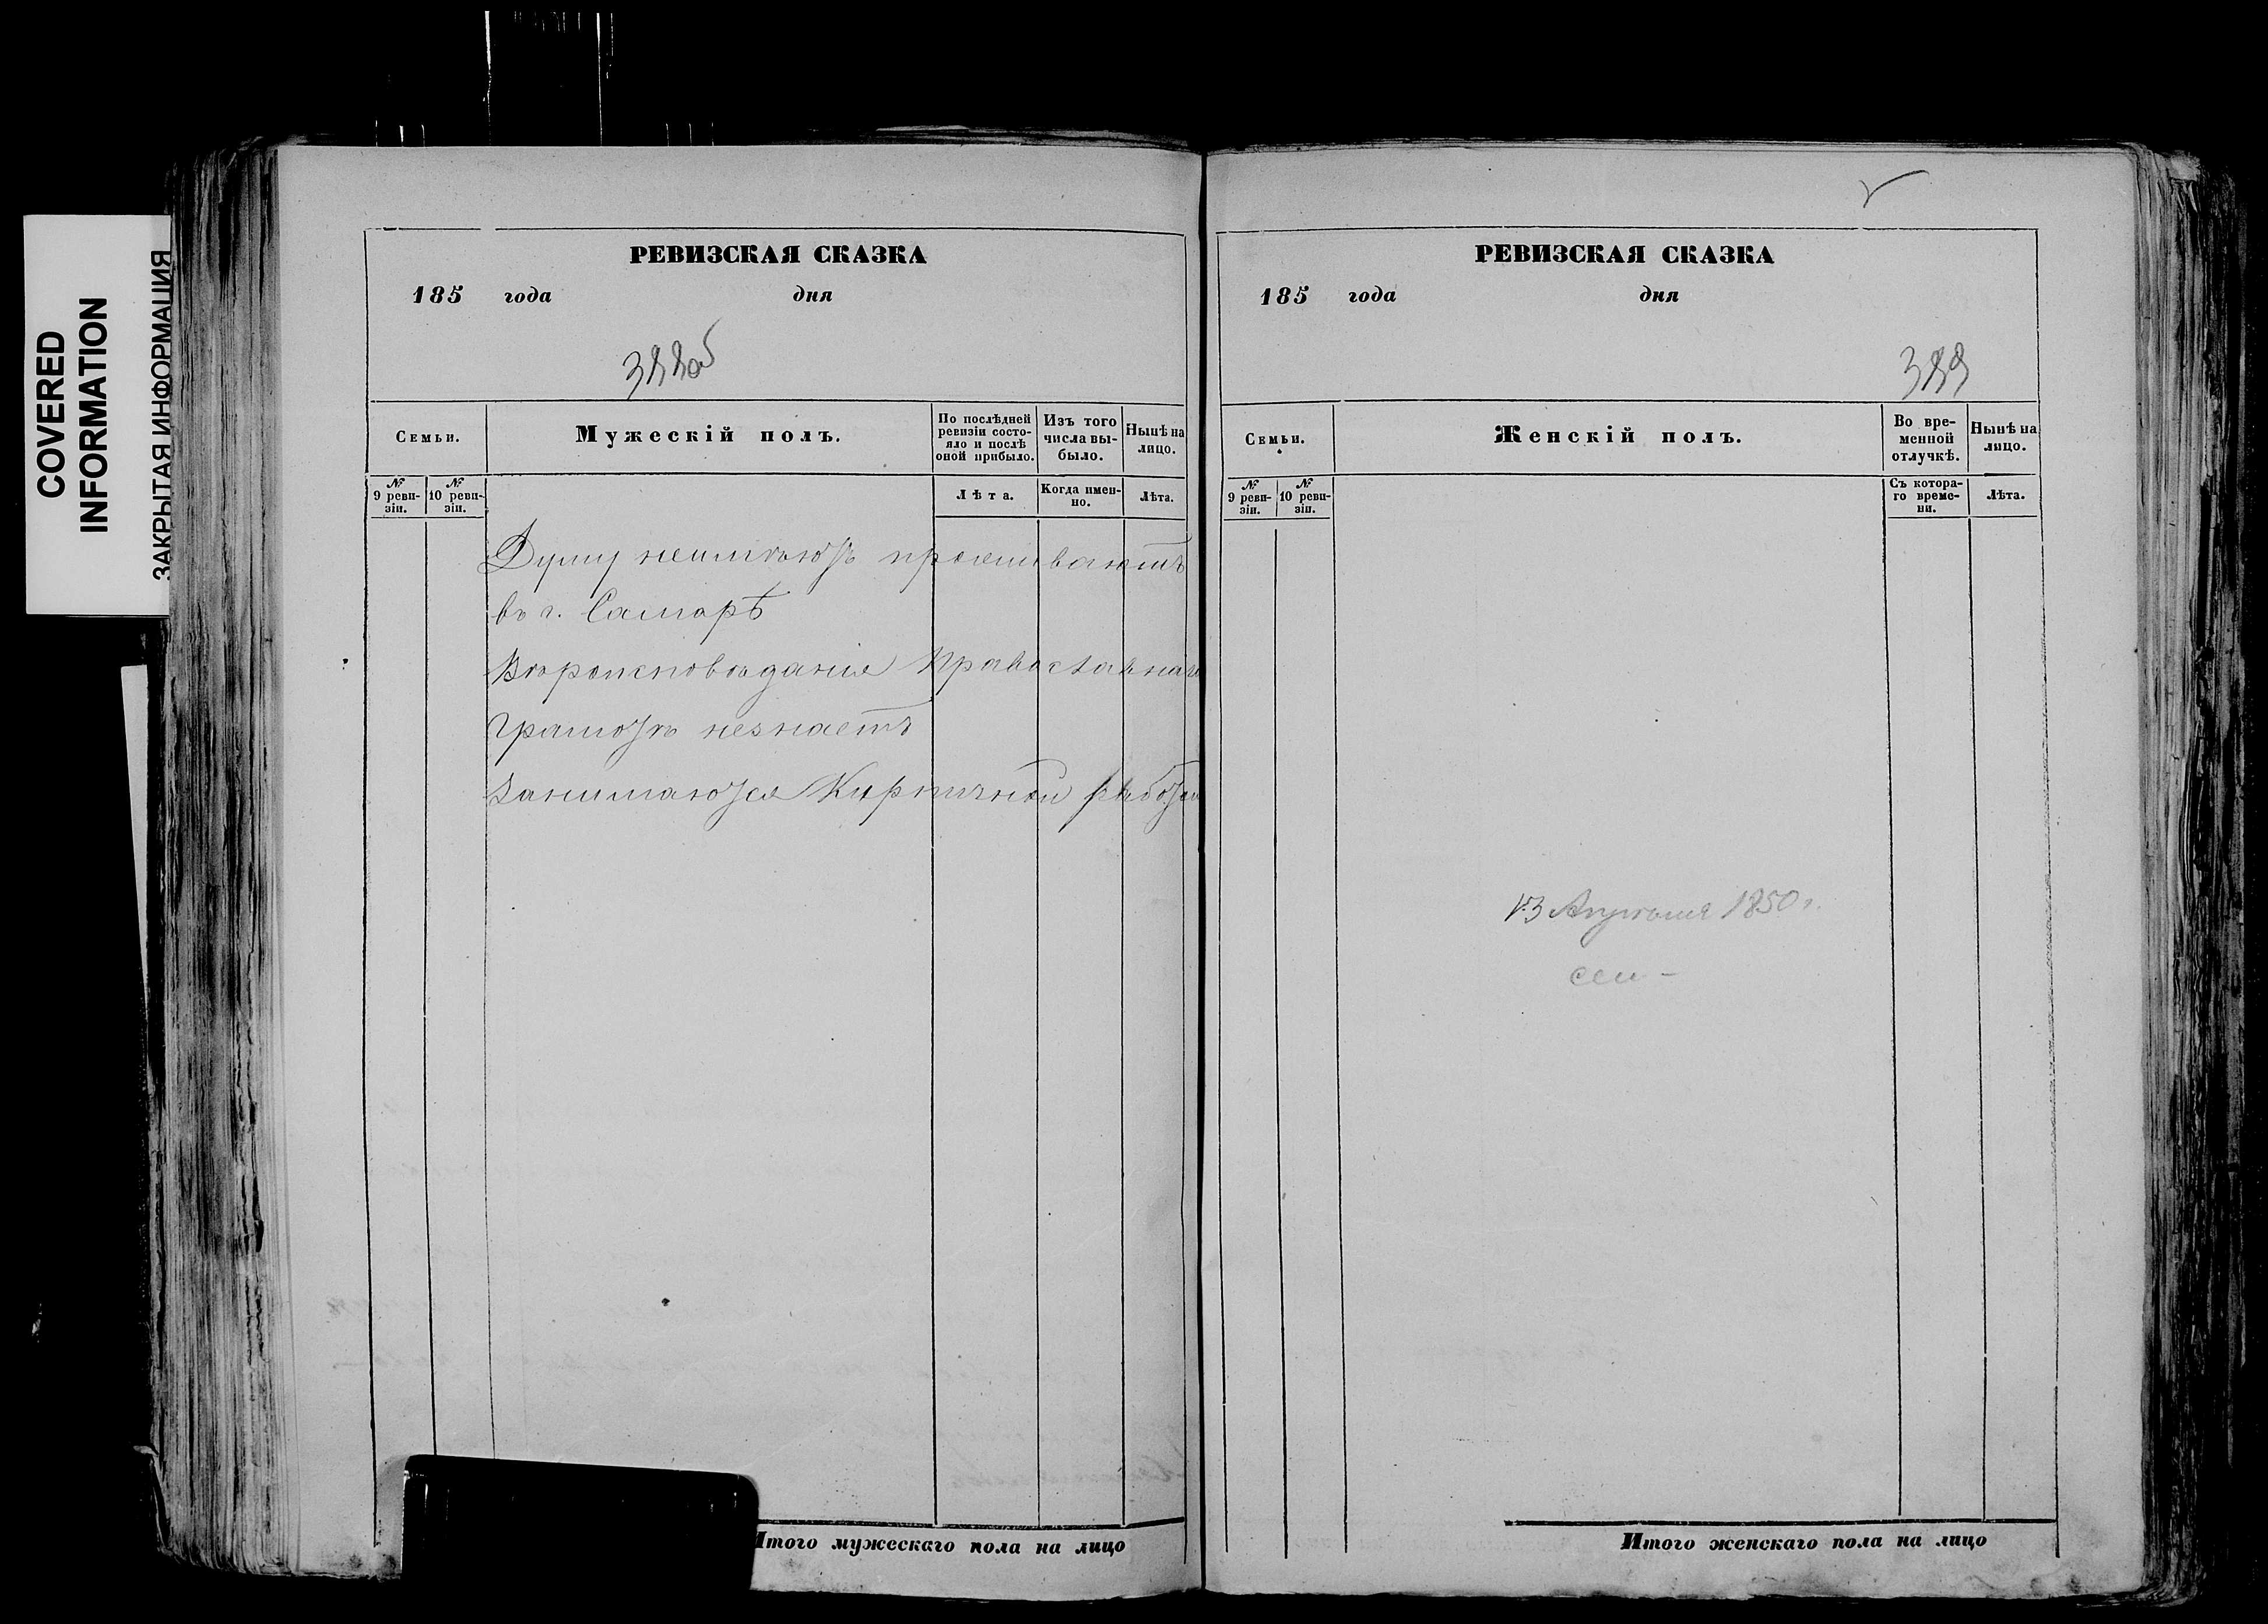 COVERED
INFORMATION
ЗАКРЫТАЯ ИНФОРМАЦИЯ
РЕВИЗСКАЯ СКАЗКА
185 года дня
388об
Семьи.
Мужескій полъ.
По послѣдней
ревизіи состо-
яло и послѣ
оной прибыло.
Изъ того
числа вы-
было.
Нынѣ на
лицо.
№
9 реви-
зіи.
№
10 реви-
зіи.
Лѣта.
Когда имен-
но.
Лѣта.
неимѣютъ проживаютъ
въ г. Самарѣ
Вѣроисповѣданія Православнаго
Грамотѣ незнаетъ
Занимаются Кирпичной работой
Итого мужескаго пола на лицо
РЕВИЗСКАЯ СКАЗКА
185 года дня
389
Семьи.
Женскій полъ.
Во вре-
менной
отлучкѣ.
Нынѣ на
лицо.
№
9 реви-
зіи.
№
10 реви-
зіи.
Съ котора-
го време-
ни.
Лѣта.
1850 г.
Итого женскаго пола на лицо